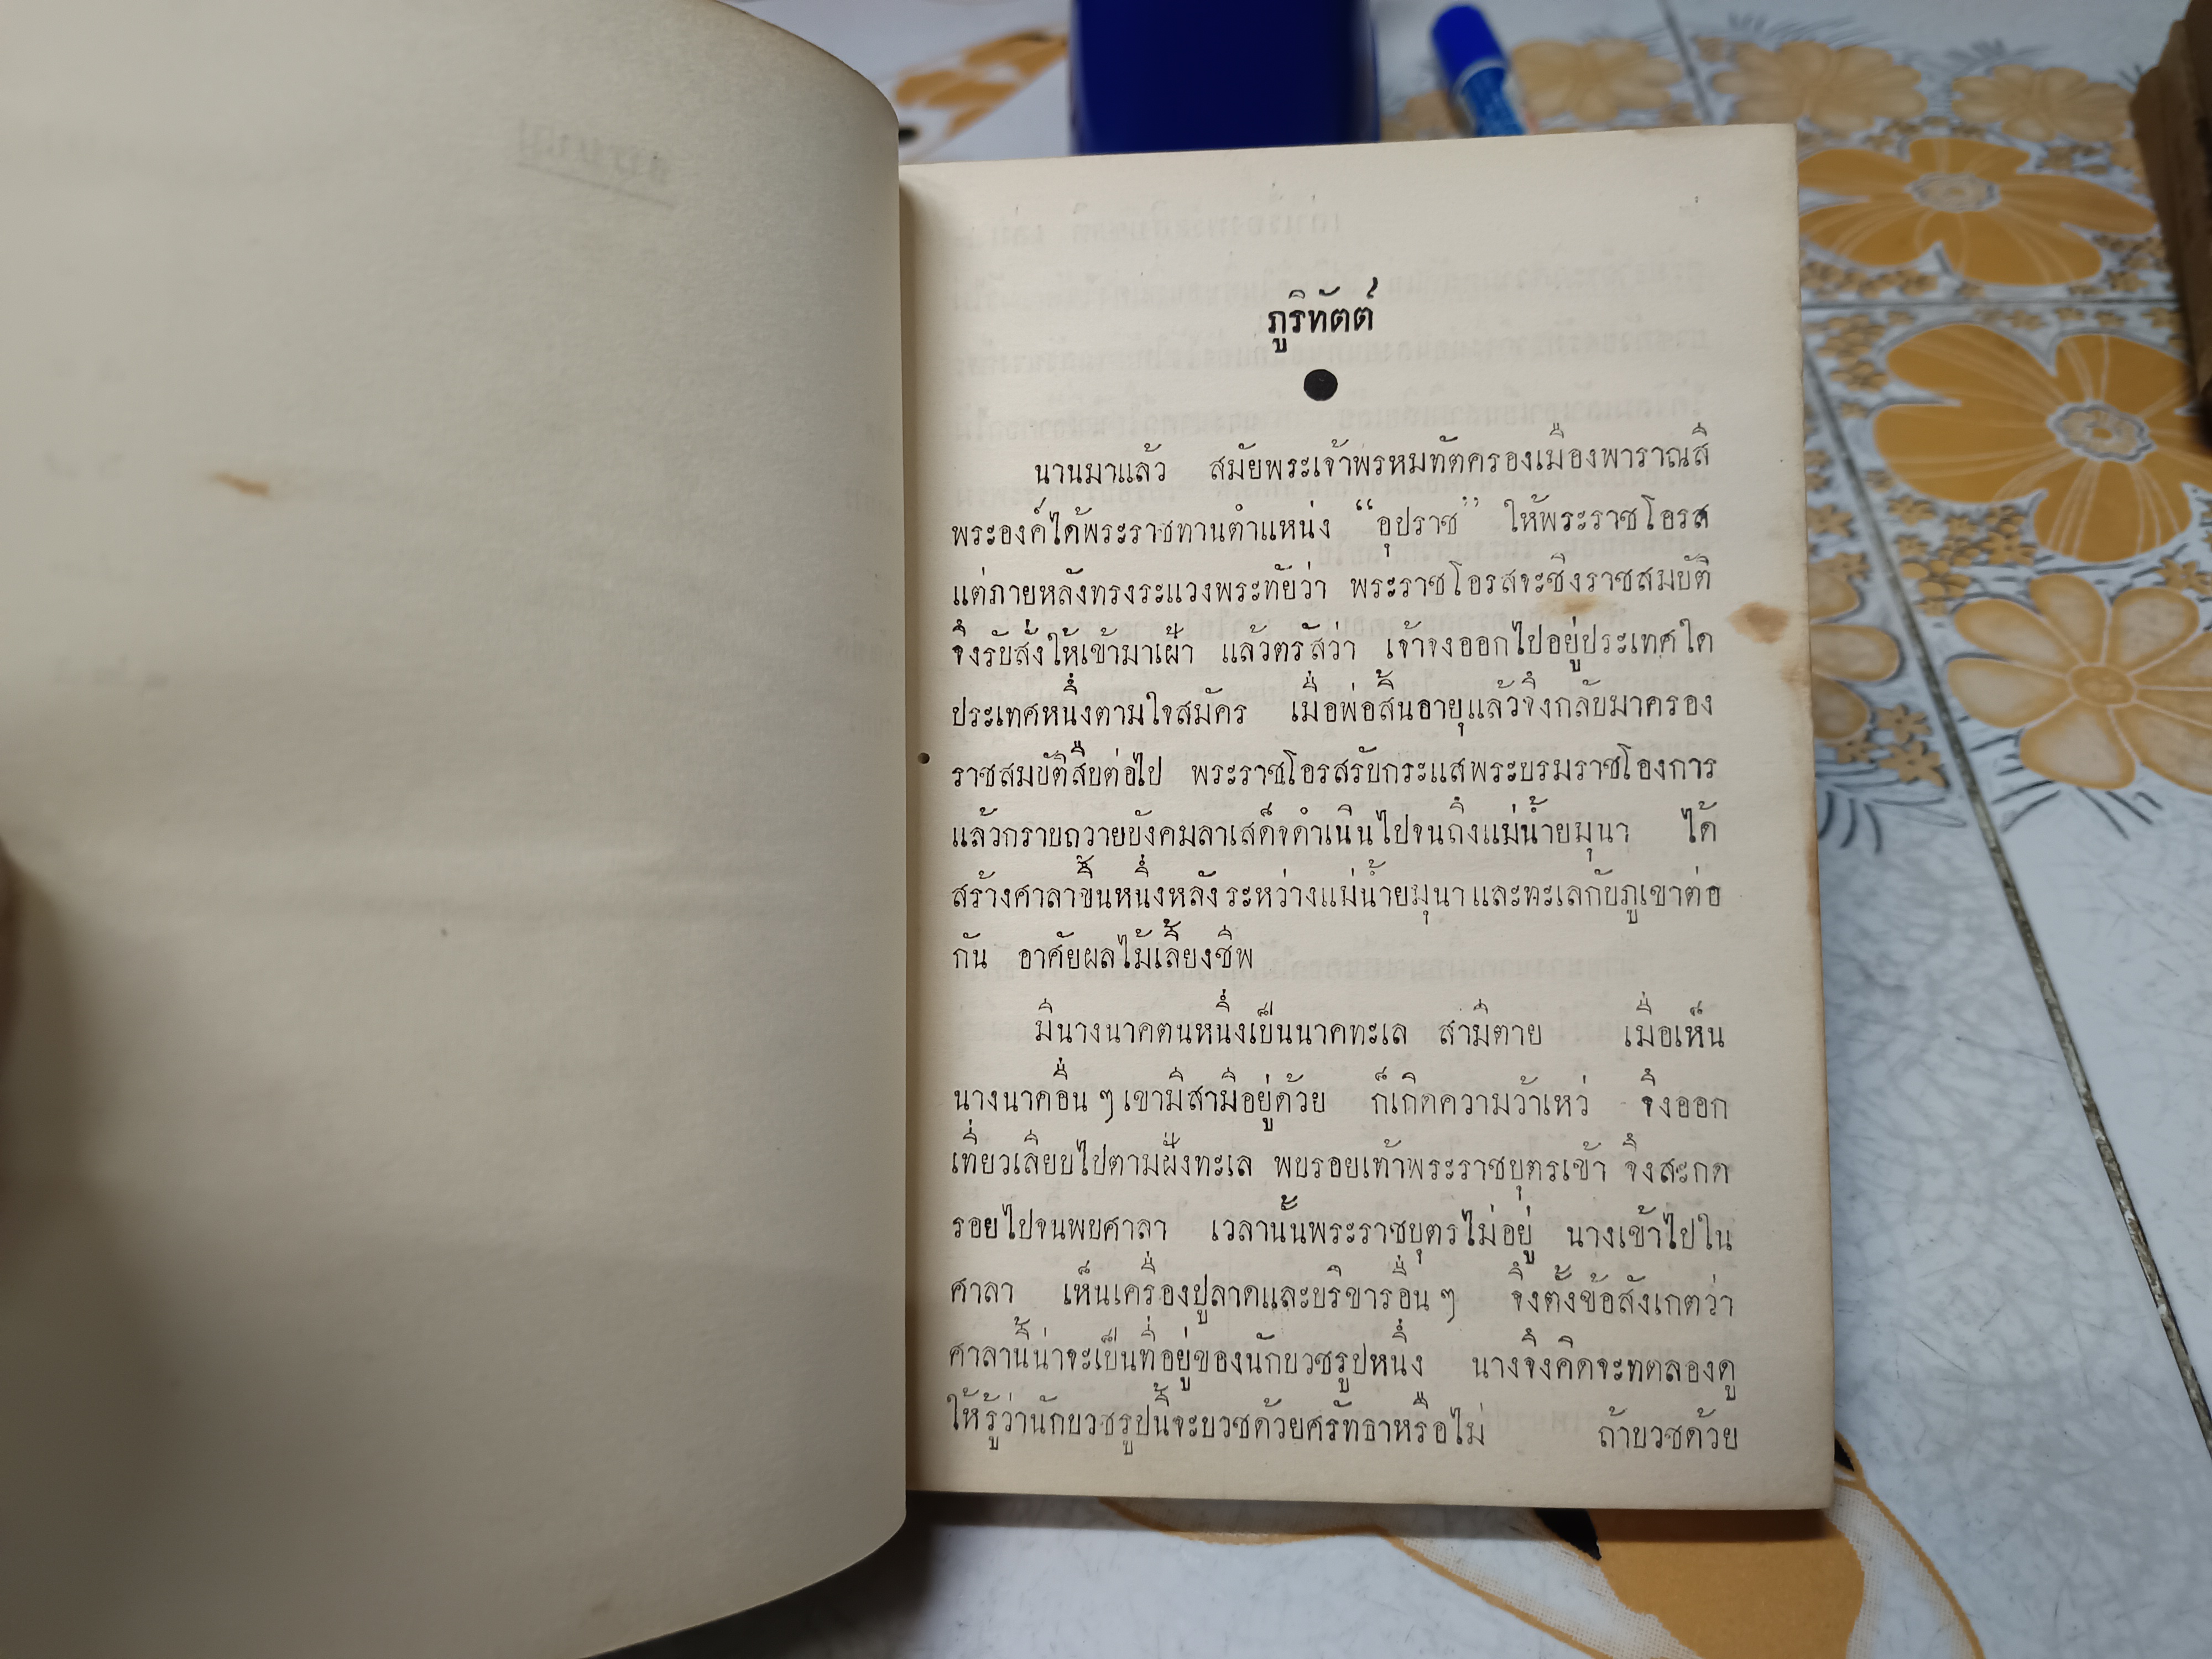 ภูริทัตต์
นานมาแล้ว สมัยพระเจ้าพรหมทัตครองเมืองพาราณสี
พระองค์ได้พระราชทานตำแหน่ง “อุปราช” ให้พระราชโอรส
แต่ภายหลังทรงระแวงพระทัยว่า พระราชโอรสจะชิงราชสมบัติ
จึงรับสั่งให้เข้ามาเฝ้า แล้วตรัสว่า เจ้าจงออกไปอยู่ประเทศใด
ประเทศหนึ่งตามใจสมัคร เมื่อพ่อสิ้นอายุแล้วจึงกลับมาครอง
ราชสมบัติสืบต่อไป พระราชโอรสรับกระแสพระบรมราชโองการ
แล้วกราบถวายบังคมลาเสด็จดำเนินไปจนถึงแม่น้ำยมุนา ได้
สร้างศาลาขึ้นหนึ่งหลังระหว่างแม่น้ำยมุนาและทะเลกับภูเขาต่อ
กัน อาศัยผลไม้เลี้ยงชีพ
มีนางนาคตนหนึ่งเป็นนาคทะเล สามีตาย เมื่อเห็น
นางนาคอื่น ๆ เขามีสามีอยู่ด้วย ก็เกิดความว้าเหว่ จึงออก
เที่ยวเลียบไปตามฝั่งทะเล พบรอยเท้าพระราชบุตรเข้า จึงสะกด
รอยไปจนพบศาลา เวลานั้นพระราชบุตรไม่อยู่ นางเข้าไปใน
ศาลา เห็นเครื่องปูลาดและบริขารอื่น ๆ จึงตั้งข้อสังเกตว่า
ศาลานี้น่าจะเป็นที่อยู่ของนักบวชรูปหนึ่ง นางจึงคิดจะทดลองดู
ให้รู้ว่านักบวชรูปนี้จะบวชด้วยศรัทธาหรือไม่ ถ้าบวชด้วย